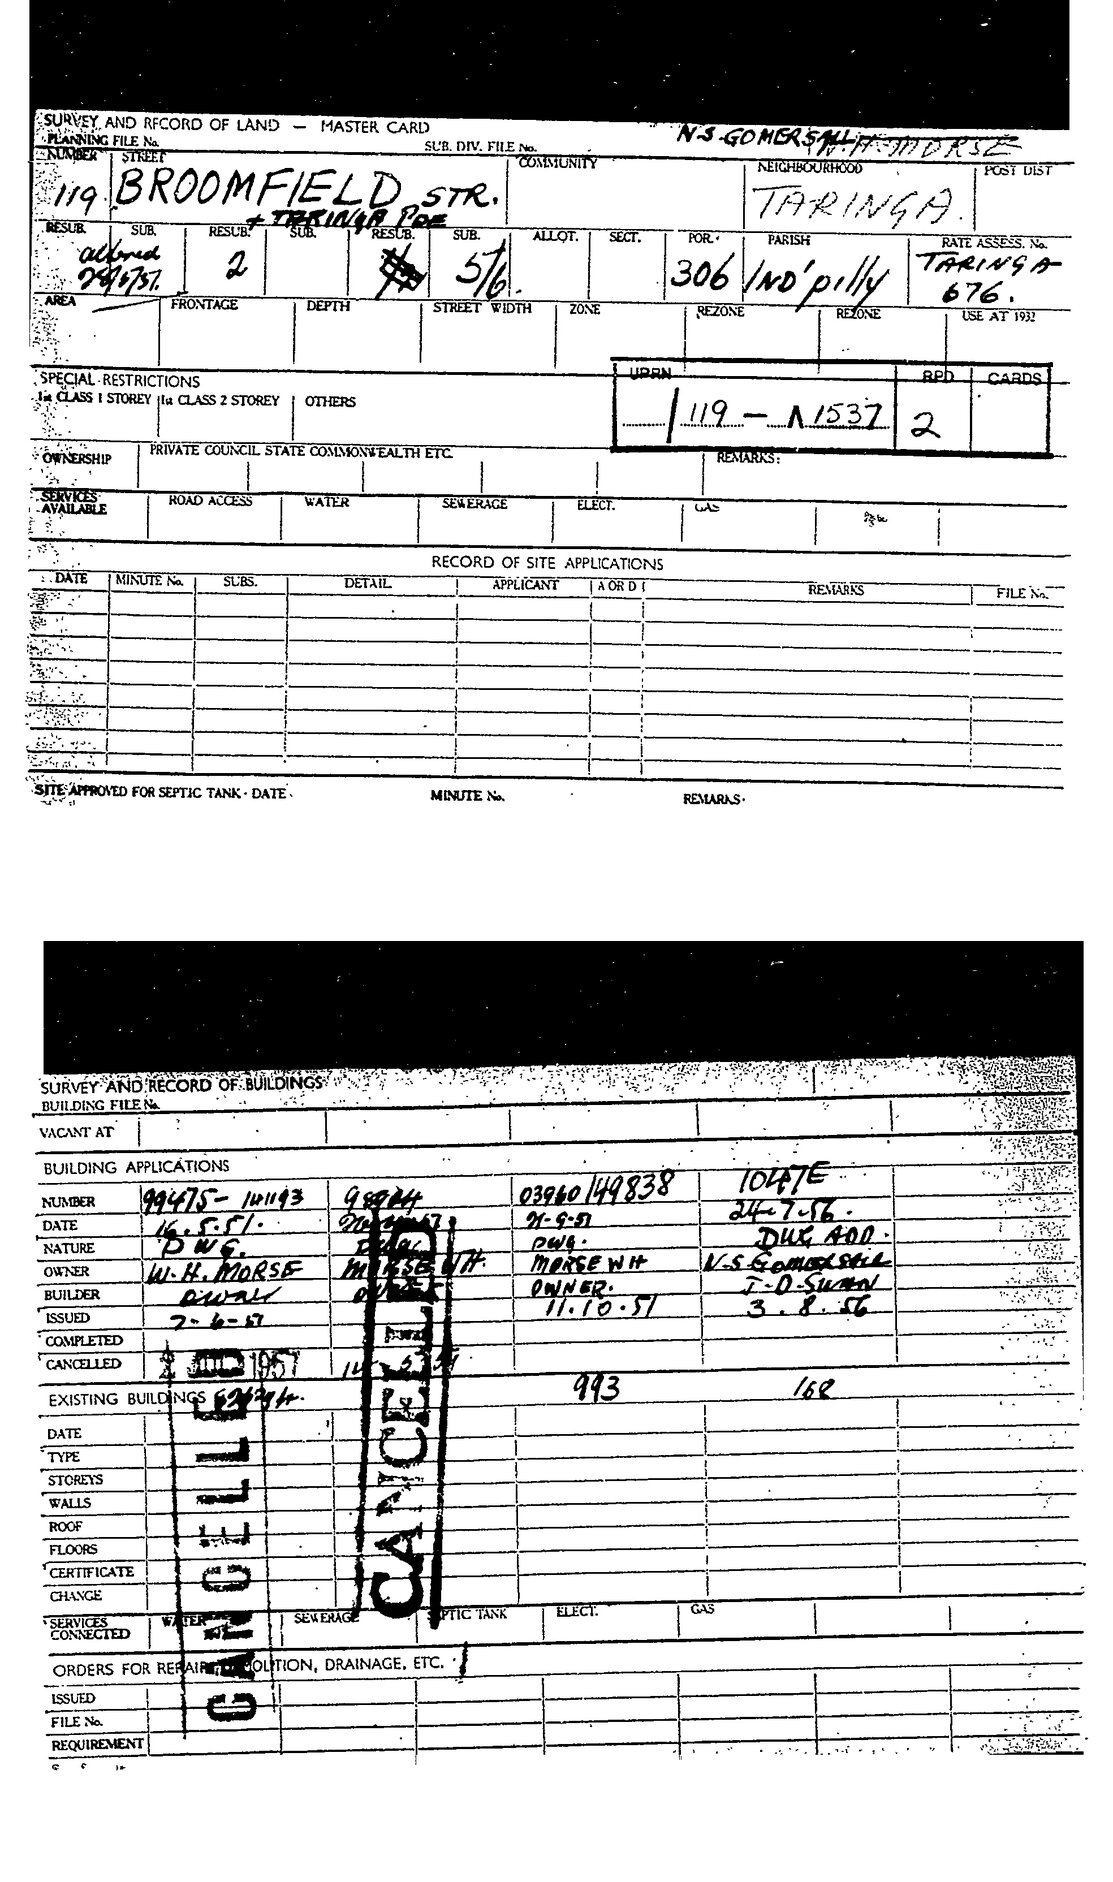 SURVEY AND RECORD OF LAND — MASTER CARD
N.S. GOMERSALL W.H. MORSE
PLANNING FILE No. SUB. DIV. FILE No.
NUMBER STREET COMMUNITY NEIGHBOURHOOD POST DIST
119 BROOMFIELD STR. TARINGA.
+ TARINGA PDE
RESUB. SUB. RESUB. SUB. RESUB. SUB. ALLOT. SECT. POR. PARISH RATE ASSESS. No.
altered 2 5/6. 306 IND'pilly TARINGA
676.
AREA FRONTAGE DEPTH STREET WIDTH ZONE REZONE REZONE USE AT 1932
SPECIAL RESTRICTIONS UPRN RPD CARDS
1st CLASS 1 STOREY 1st CLASS 2 STOREY OTHERS
/ 119 — 1537 2
OWNERSHIP PRIVATE COUNCIL STATE COMMONWEALTH ETC. REMARKS:
SERVICES AVAILABLE ROAD ACCESS WATER SEWERAGE ELECT. GAS
RECORD OF SITE APPLICATIONS
DATE MINUTE No. SUBS. DETAIL APPLICANT A OR D REMARKS FILE No.
SITE APPROVED FOR SEPTIC TANK · DATE MINUTE No. REMARKS
SURVEY AND RECORD OF BUILDINGS
BUILDING FILE No.
VACANT AT
BUILDING APPLICATIONS
NUMBER 99475 - 03960/149838 1047E
DATE 16.5.51. 21-9-51 24-7-56.
NATURE DWG. DWG. DWG ADD.
OWNER W.H. MORSE MORSE WH. MORSE WH N.S GOMERSALL
BUILDER OWNER OWNER. J-D-SWAN
ISSUED 7-6-51 11.10.51 3.8.56
COMPLETED
CANCELLED 1957
EXISTING BUILDINGS 993 168
DATE
TYPE
STOREYS
WALLS
ROOF
FLOORS
CERTIFICATE
CHANGE
CANCELLED
CANCELLED
SERVICES CONNECTED WATER SEWERAGE SEPTIC TANK ELECT. GAS
ORDERS FOR REPAIR, DEMOLITION, DRAINAGE, ETC.
ISSUED
FILE No.
REQUIREMENT